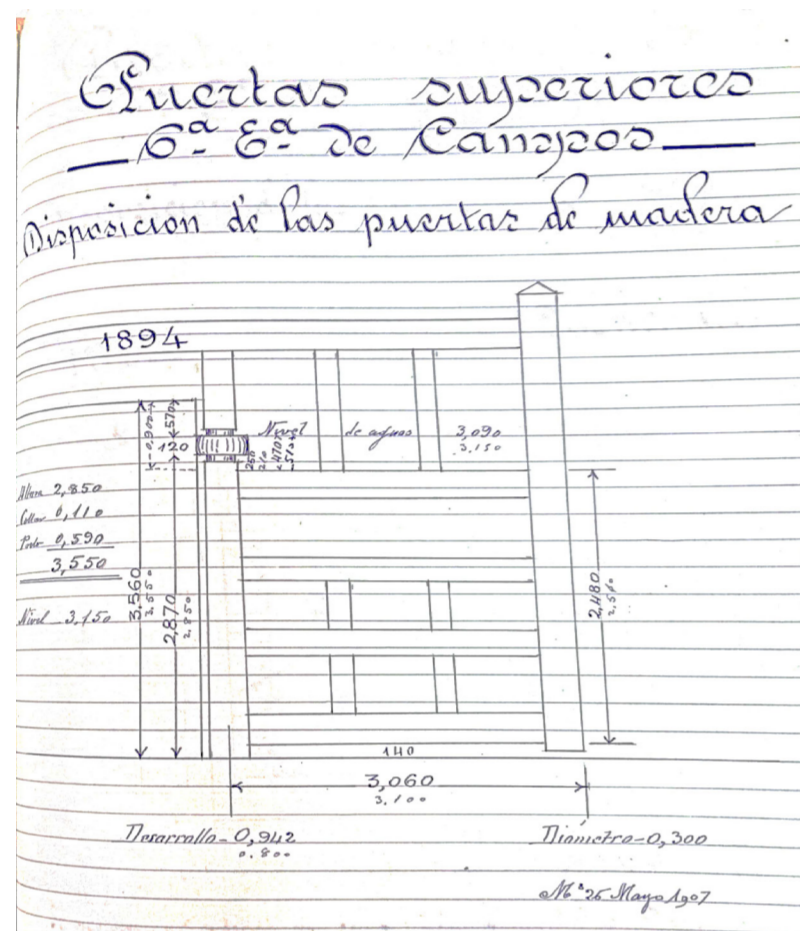 Puertas superiores
6ª Eª de Campos
Disposicion de las puertas de madera
1894
0,900
570
120
Nivel de aguas 3,090
3.150
250
210
470
510
Altura 2,850
Collar 0,110
0,590
3,550
Nivel 3.150
3,560
3,550
2,870
2,850
2,480
2,510
140
3,060
3.100
Desarrollo - 0,942
0.800
Diámetro - 0,300
Mª 25 Mayo 1907